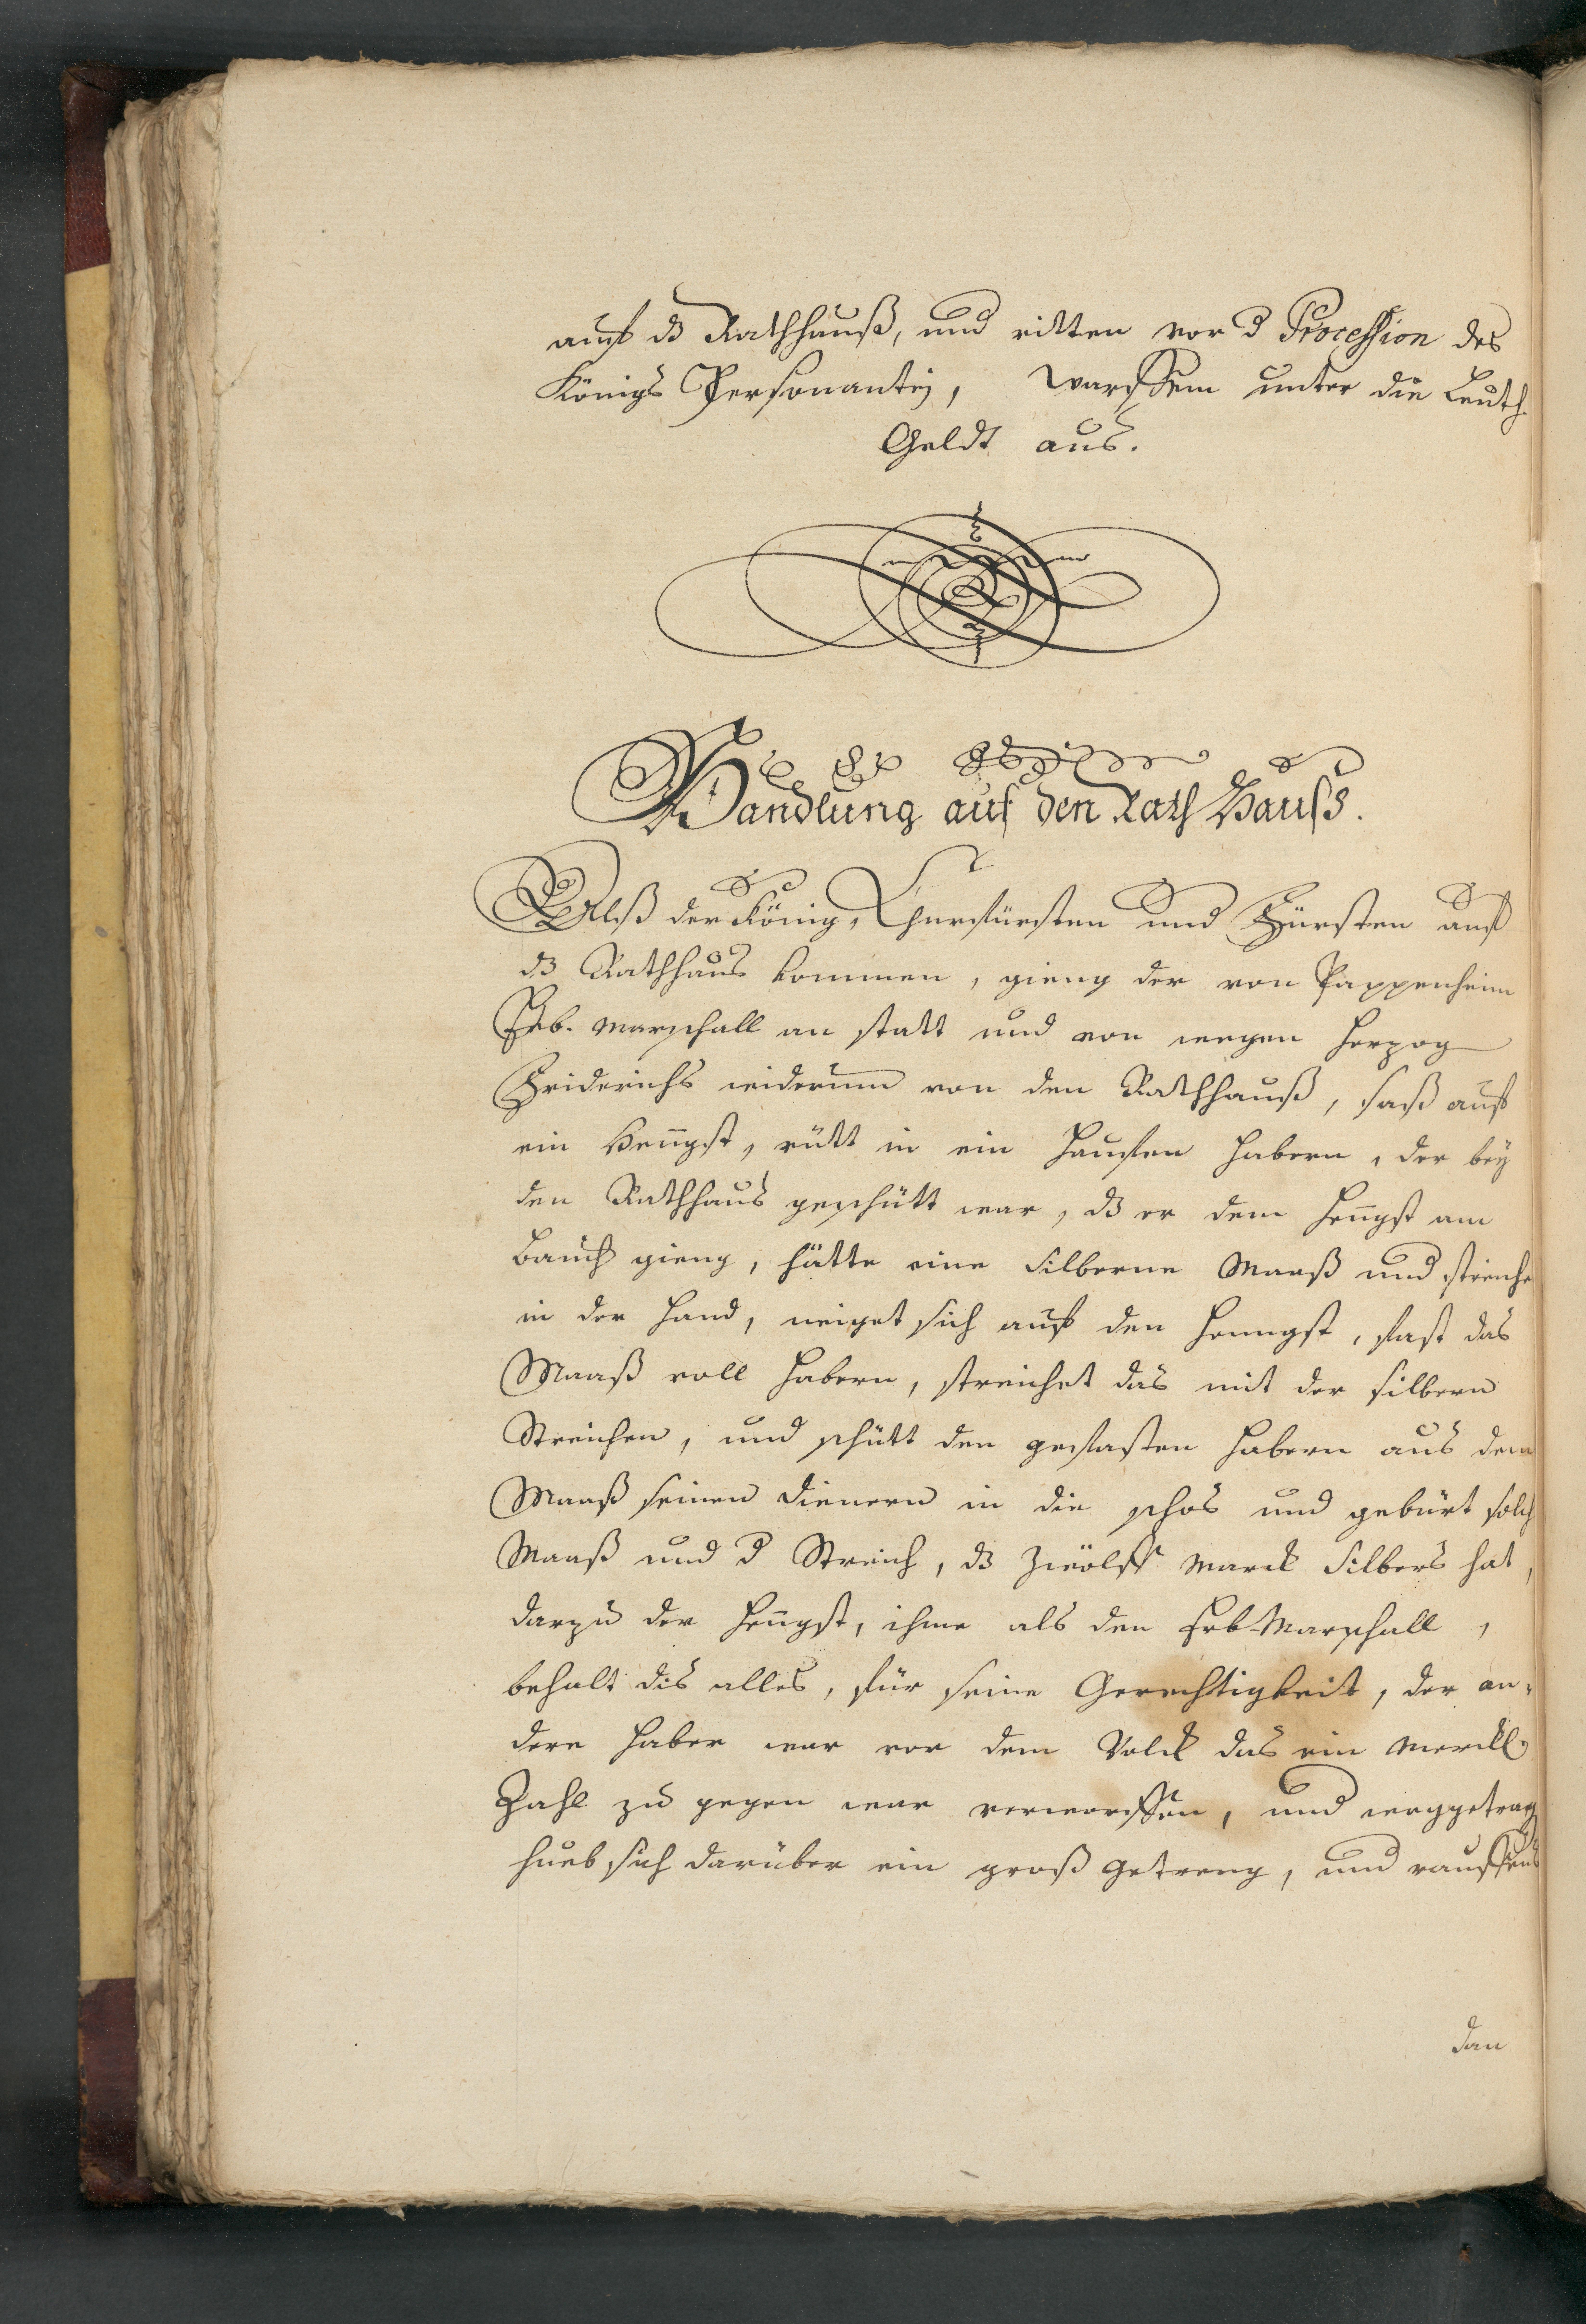 auf dz Rathhauß, und ritten vor d Procession des
Königs Personanten, warffen unter die Leuth
Geldt aus.
Handlung auf den Rath Hauss.
Alß der König, Churfürsten und Fürsten auf
dz Rathhaus kommen, gieng der von Pappenheim
Erb. Marschall an statt und von wegen Herzog
Friderichs widerumm von den Rathhauß, saß auf
ein Hengst, rütt in ein Hauffen Habern, der bey
den Rathhaus geschütt war, dz er dem Hengst am
Bauch gieng, hätte eine Silberne Maaß und streiche
in der Hand, neiget sich auf den Henngst, fast das
Maaß voll Habern, streichet das mit der silbern
Streichen, und schütt den gefasten Habern aus dem
Maaß seinen Dienern in die schos und gebürt solch
Maaß und d Streich, dz zwölff Marck Silbers hat,
darzu der Hengst, ihme als den Erb-Marschall,
behalt dis alles, für seine Gerechtigkeit, der an,
dere Haber war vor dem Volck das ein merckl.
Zahl zu gegen war verworffen, und weggetrag
hueb sich darüber ein groß getreng, und rauffens
dan